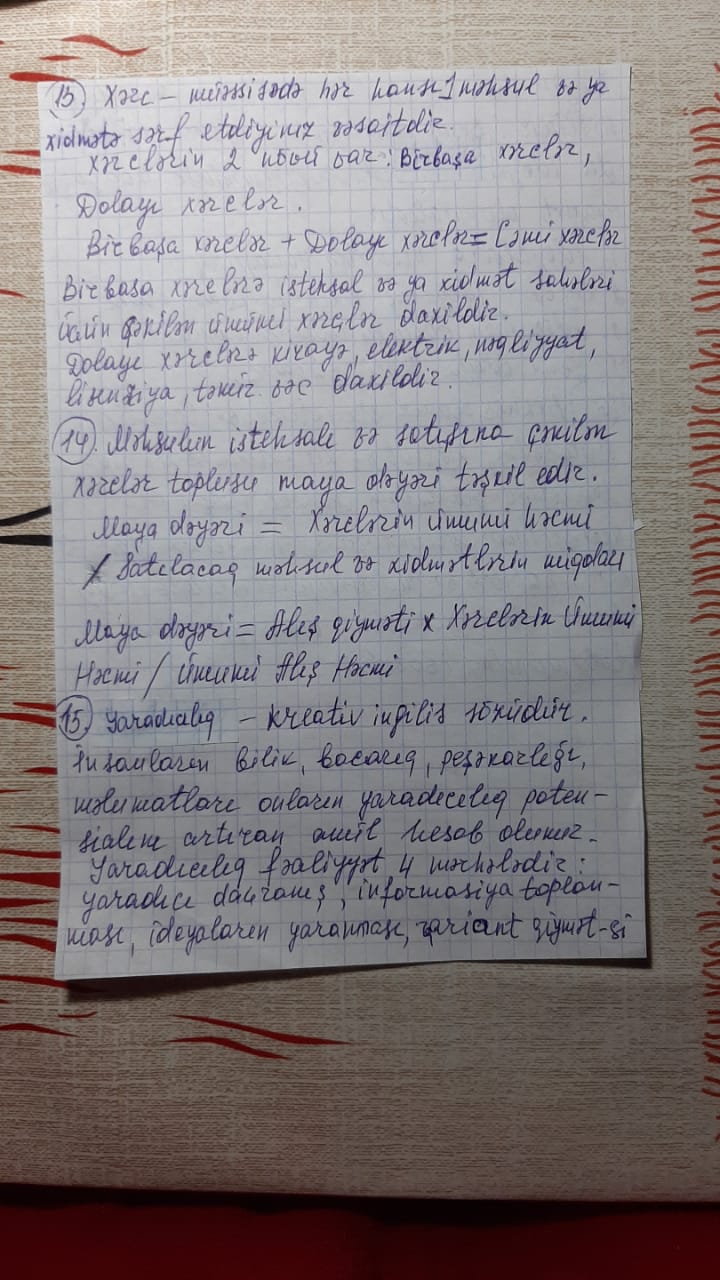 13) Xərc – müəssisədə hər hansı 1 məhsul və ya
xidmətə sərf etdiyiniz vəsaitdir.
Xərclərin 2 növü var: Birbaşa xərclər,
Dolayı xərclər.
Birbaşa xərclər + Dolayı xərclər = Cəmi xərclər
Birbaşa xərclərə istehsal və ya xidmət sahələri
üçün çəkilən ümumi xərclər daxildir.
Dolayı xərclərə kirayə, elektrik, nəqliyyat,
lisenziya, təmir vəs daxildir.
14. Məhsulun istehsalı və satışına çəkilən
xərclər toplusu maya dəyəri təşkil edir.
Maya dəyəri = Xərclərin ümumi həcmi
/ Satılacaq məhsul və xidmətlərin miqdarı
Maya dəyəri = Alış qiyməti x Xərclərin Ümumi
Həcmi / Ümumi Alış Həcmi
15. Yaradıcılıq – kreativ ingilis sözüdür.
İnsanların bilik, bacarıq, peşəkarlığı,
məlumatları onların yaradıcılıq poten-
sialını artıran amil hesab olunur.
Yaradıcılıq fəaliyyət 4 mərhələdir:
yaradıcı davranış, informasiya toplan-
ması, ideyaların yaranması, variant qiymət-si